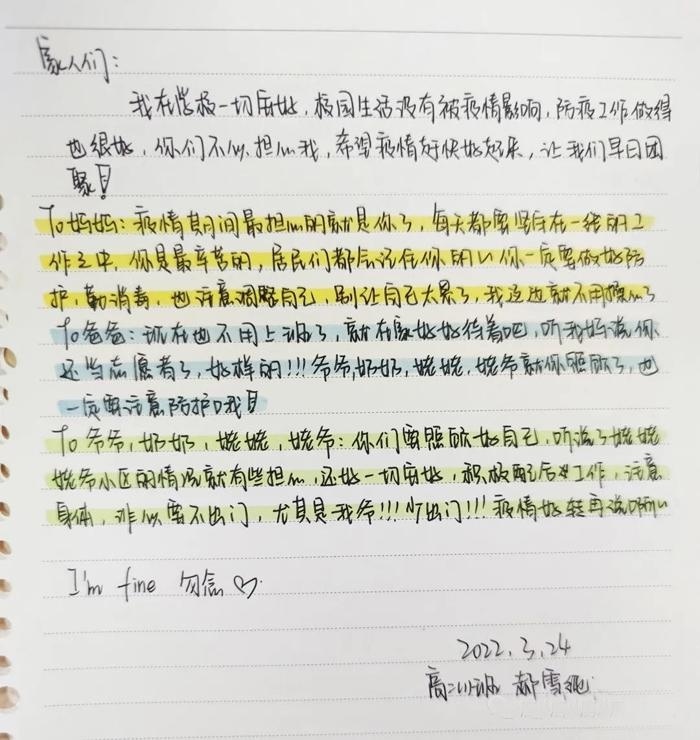 家人们：
我在学校一切安好，校园生活没有被疫情影响，防疫工作做得
也很好，你们不必担心我，希望疫情好快好起来，让我们早日团
聚！
To妈妈：疫情期间最担心的就是你了，每天都要坚守在一线的工
作之中，你是最辛苦的，居民们都会记住你的！你一定要做好防
护，勤消毒，也注意调整自己，别让自己太累了，我这边就不用操心了
To爸爸：现在也不用上班了，就在家好好待着吧，听我妈说你
还当志愿者了，好样的!!!爷爷，奶奶，姥姥，姥爷就你照顾了，也
一定要注意防护哦！
To 爷爷，奶奶，姥姥，姥爷：你们要照顾好自己，听说了姥姥
姥爷小区的情况就有些担心，还好一切安好，积极配合工作，注意
身体，非必要不出门，尤其是我爷!!!少出门!!!疫情好转再说啊
I'm fine 勿念♡
2022.3.24
高二 班 郝雪